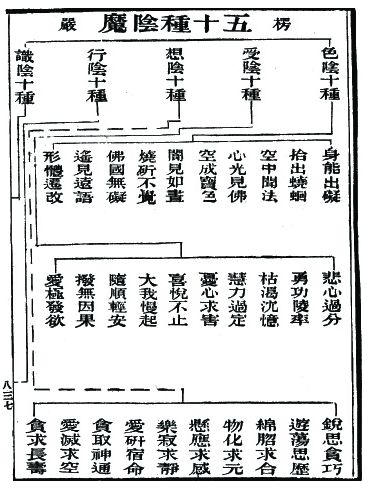 楞 五十種陰魔 嚴
色陰十種
受陰十種
想陰十種
行陰十種
識陰十種
身能出礙
拾出蟯蛔
空中聞法
心光見佛
空成寶色
闇見如晝
燒斫不覺
佛國無礙
遙見遠語
形體遷改
悲心過分
勇功陵率
枯渴沈憶
慧力過定
憂心求害
喜悅不止
大我慢起
隨順輕安
撥無因果
愛極發欲
銳思貪巧
遊蕩思歷
綿脗求合
物化求元
懸應求感
樂寂求靜
愛研宿命
貪取神通
愛滅求空
貪求長壽
八三七